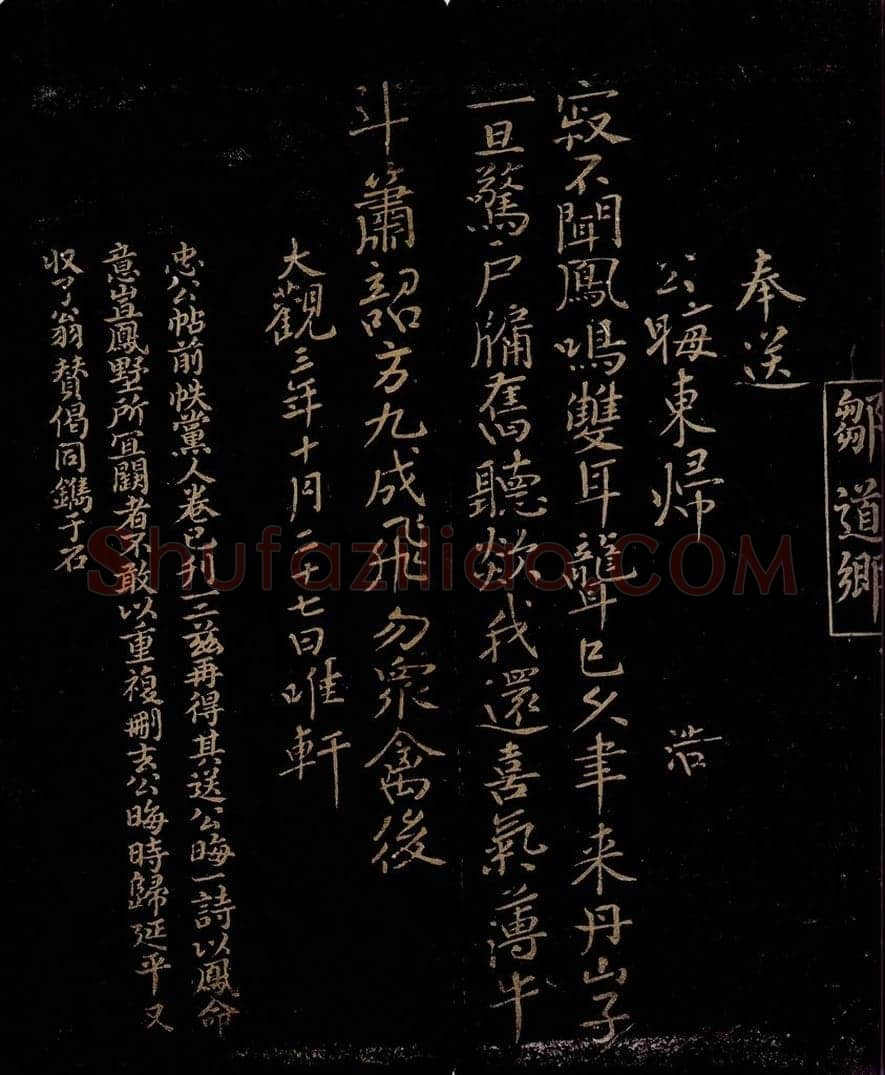 鄒道鄉
奉送
公晦東歸 浩
寂不聞鳳鳴雙耳聾已久聿来丹山子
一旦驚戶牖舊聽欻我還喜氣薄牛
斗簫韶方九成飛勿衆禽後
大觀三年十月二十七日唯軒
忠公帖前帙黨人卷已刊一二茲再得其送公晦一詩以鳳命
意豈鳳墅所宜闕者不敢以重複刪去公晦時歸延平又
収了翁贊偈同鐫于石
Shufaziliao.COM